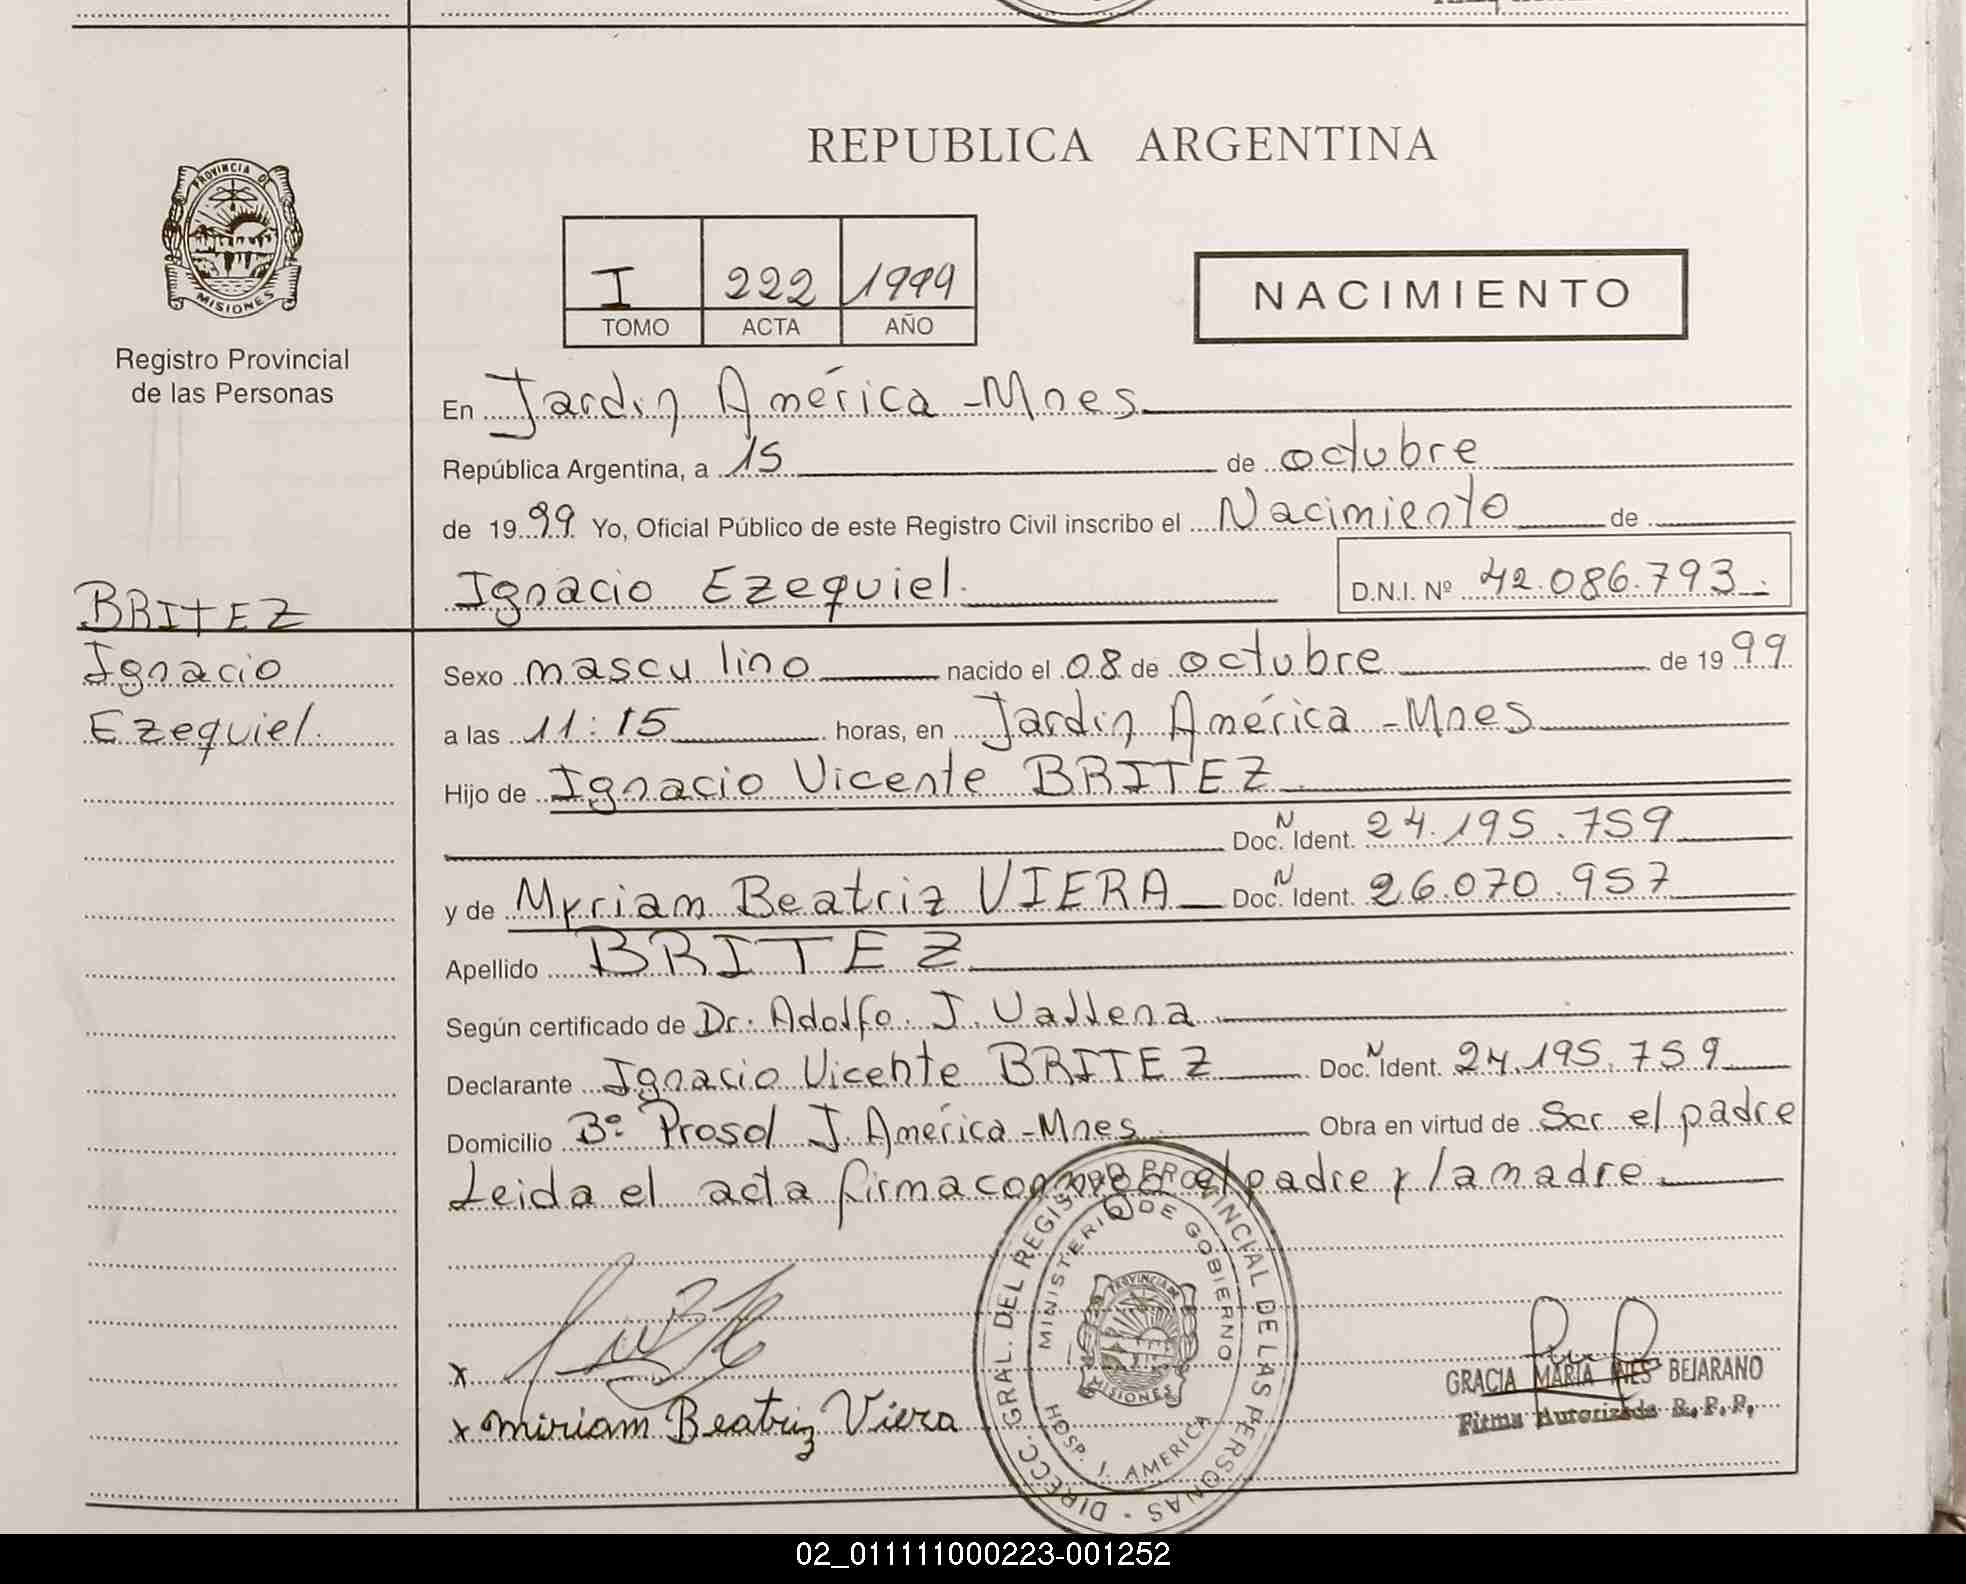 REPUBLICA ARGENTINA
PROVINCIA DE
MISIONES
Registro Provincial
de las Personas
I 222 1999
TOMO ACTA AÑO
NACIMIENTO
En Jardín América - Mnes
República Argentina, a 15 de octubre
de 1999 Yo, Oficial Público de este Registro Civil inscribo el Nacimiento de
Ignacio Ezequiel. D.N.I. Nº 42.086.793.
BRITEZ
Ignacio
Ezequiel.
Sexo masculino nacido el 08 de octubre de 1999
a las 11:15 horas, en Jardín América - Mnes
Hijo de Ignacio Vicente BRITEZ
Doc. N Ident. 24.195.759
y de Myriam Beatriz VIERA Doc. N Ident. 26.070.957
Apellido BRITEZ
Según certificado de Dr. Adolfo J.
Declarante Ignacio Vicente BRITEZ Doc. N Ident. 24.195.759
Domicilio Bº Prosol J. América - Mnes Obra en virtud de Ser el padre
Leida el acta firma el padre y la madre
x
x Miriam Beatriz Viera
DIRECC. GRAL. DEL REGISTRO PROVINCIAL DE LAS PERSONAS
MINISTERIO DE GOBIERNO
PROVINCIA DE
MISIONES
HOSP. J. AMERICA
GRACIA MARIA INES BEJARANO
Firma Autorizada R.P.P.
02_011111000223-001252